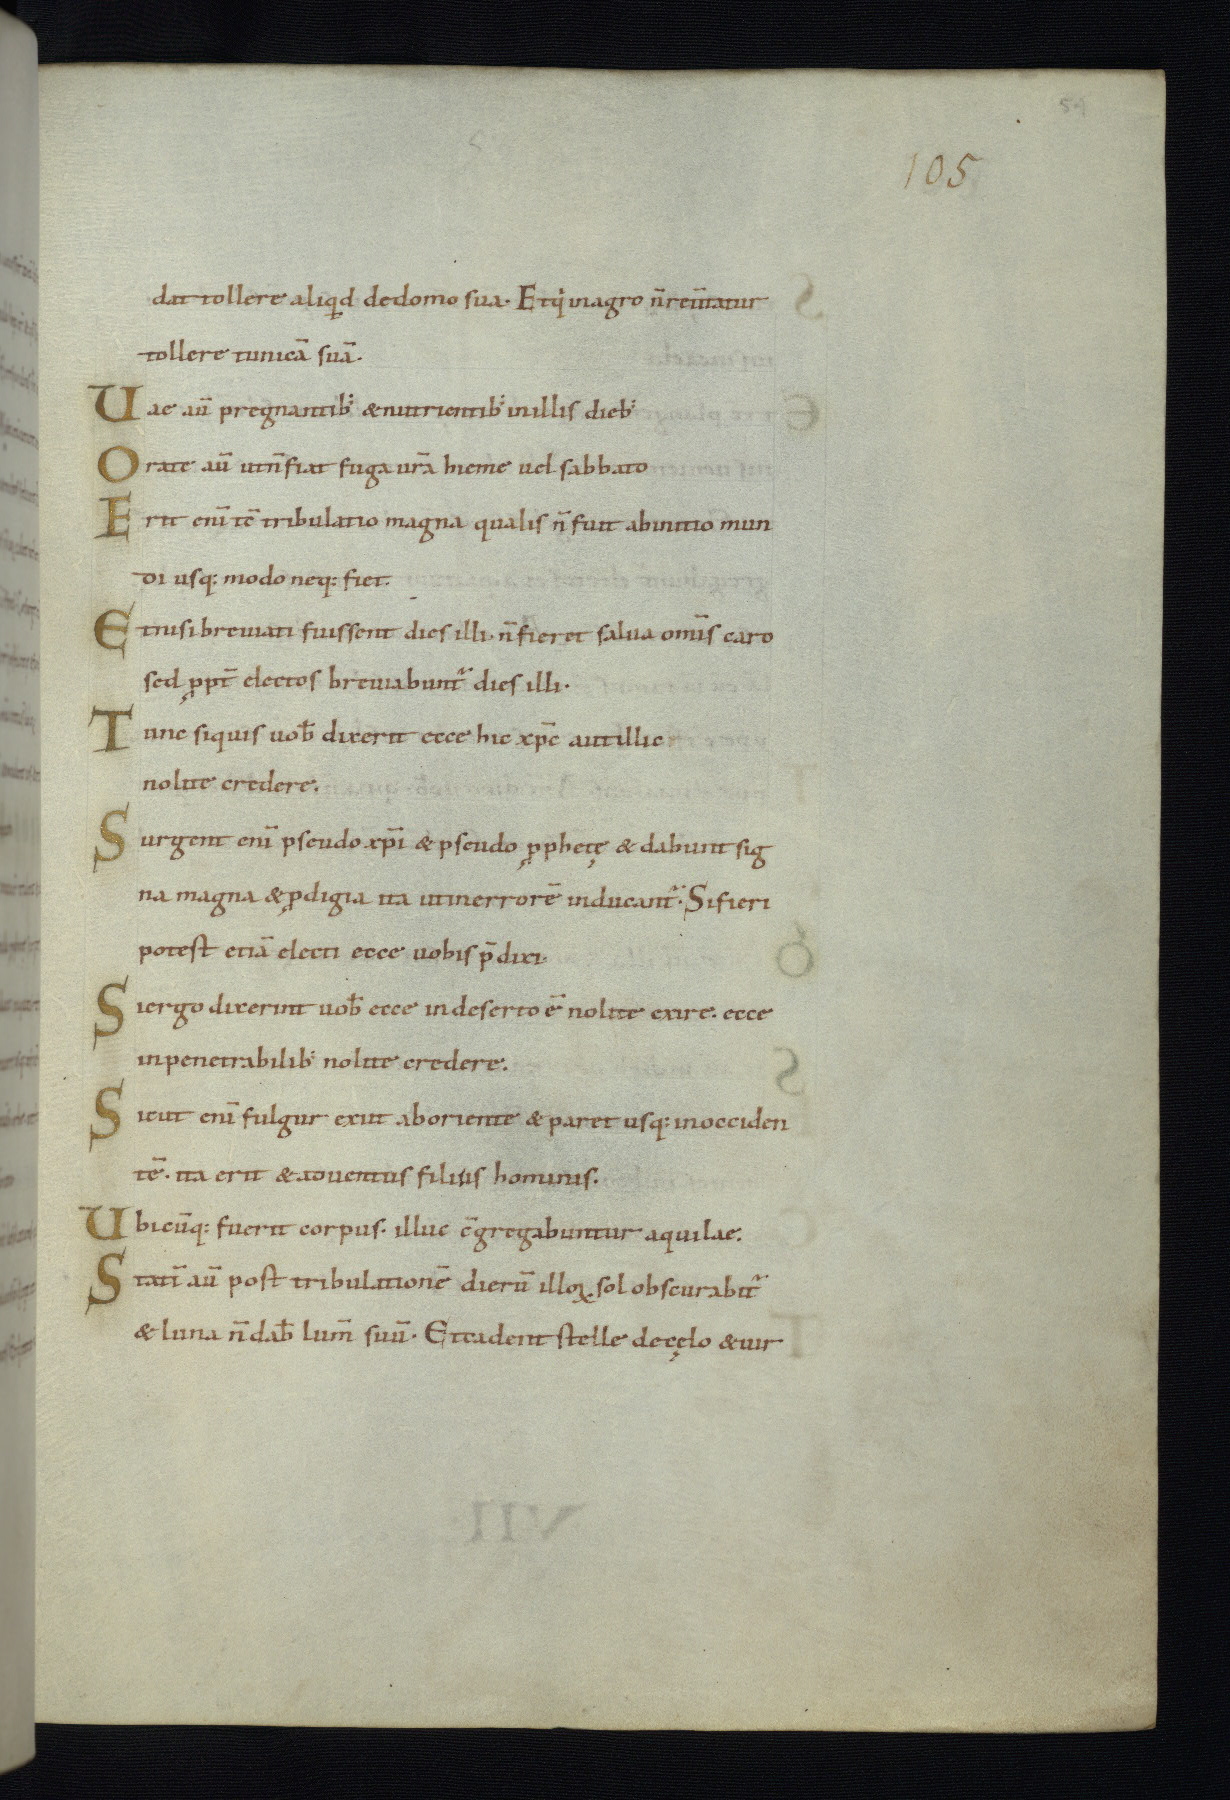 54
105
dat tollere aliqd dedomo sua. Et q̇ inagro n̄ reu̅tatur
tollere tunicā suā.
Uae au̅ pregnantib; & nutrientib; inillis dieb;
Orate au̅ utn̄ fiat fuga ur̄a hieme uel sabbato
Erit eni̅ tc̄ tribulatio magna qualis n̄ fuit abinitio mun
di usq; modo neq; fiet.
Etnisi breuiati fuissent dies illi. n̄ fieret salua omi̅s caro
sed ꝓpt̄ electos breuiabunt̃ dies illi.
Tunc siquis uob̄ dixerit ecce hic xp̄c aut illic
nolite credere.
Surgent eni̅ pseudo xp̄i & pseudo ꝓphetę & dabunt sig
na magna & ꝓdigia ita utinerrorē inducant̃. Sifieri
potest etiā electi ecce uobis p̄dixi.
Siergo dixerint uob̄ ecce indeserto ē nolite exire. ecce
inpenetrabilib; nolite credere.
Sicut eni̅ fulgur exit aboriente & paret usq; inocciden
tē. ita erit & aduentus filius hominis.
Ubicu̅q; fuerit corpus. illuc c̄gregabuntur aquilae.
Stati̅ au̅ post tribulationē dieru̅ illoꝝ sol obscurabit̃
& luna n̄ dab̄ lum̄ suu̅. Et cadent stelle decęlo & uir